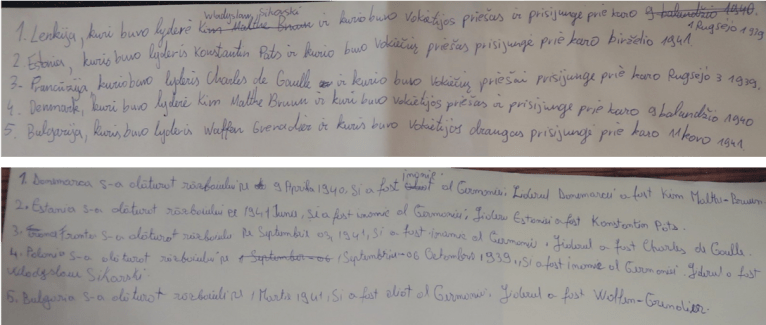 Wladyslaw Sikorski
1. Lenkija, kuri buvo lyderė Kim Malthe Bruun ir kurio buvo Vokietijos priešas ir prisijungė prie karo 9 balandžio 1940.
1 Rugsejo 1939
2. Estonia, kuris buvo lyderis Konstantin Pats ir kurio buvo Vokiečių priešas prisijunge prie karo birželio 1941.
3. Prencūzija kurio buvo lyderis Charles de Gaulle ir kurio buvo Vokiečių priešai prisijunge prie karo Rugsejo 3 1939.
4. Denmark, kuri buvo lyderė Kim Malthe Bruun ir kuri buvo Vokietijos priešas ir prisijunge prie karo 9 balandžio 1940
5. Bulgarija, kuris buvo lyderis Waffen Grenadier ir kuris buvo Vokietijos draugas prisijungė prie karo 1 kovo 1941
inamic
1. Danemarca s-a alăturat războiului pe 9 Aprilie 1940. Si a fost al Germaniei. Liderul Danemarcei a fost Kim Malthe-Bruun
2. Estania s-a alăturat războiului pe 1941 June, Si a fost inamic al Germaniei; Liderul Estonei a fost Konstantin Pats.
3. Franta s-a alăturat războiului pe Septembrie 03, 1941, Si a fost inamic al Germaniei. Liderul a fost Charles de Gaulle.
4. Polonia s-a alăturat războiului pe 1 Septembrie-06 Octombrie 1939, Si a fost inamic al Germaniei. Liderul a fost
Wladyslaw Sikorski.
5. Bulgaria s-a alăturat războiului pe 1 Martie 1941, Si a fost aliat al Germaniei. Liderul a fost Waffen-Grenadier.